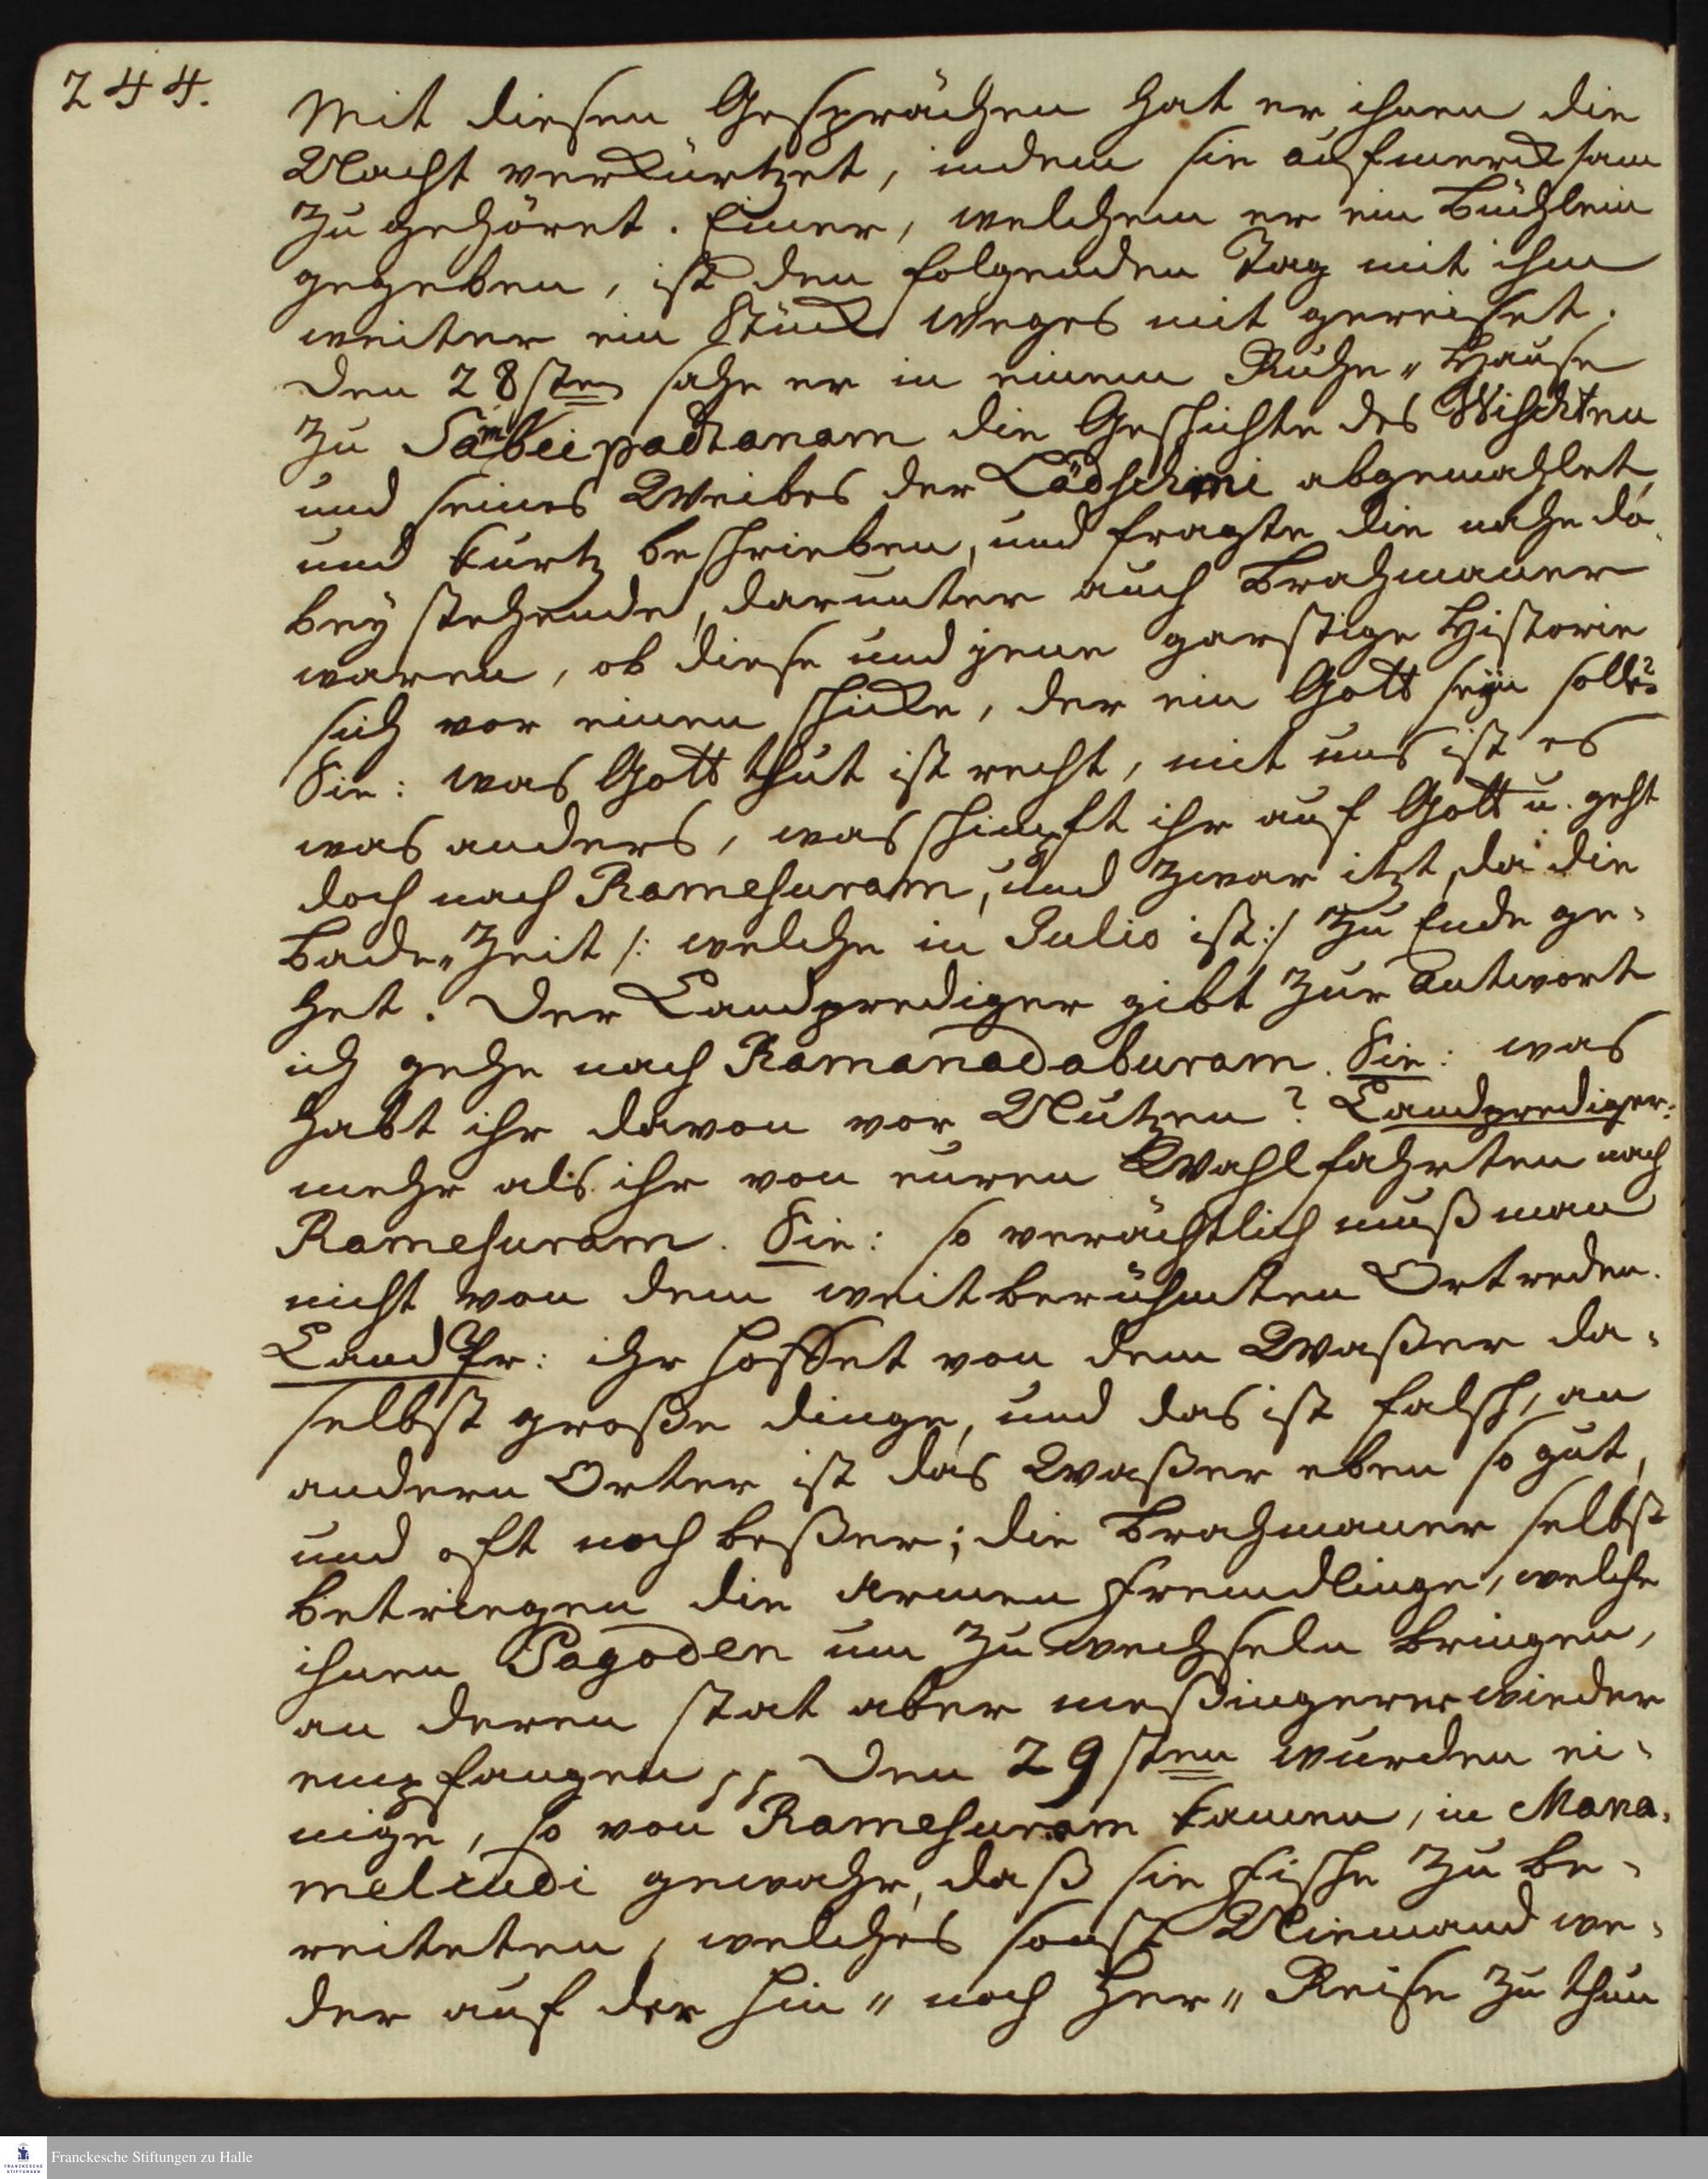 244.
Mit diesen Gesprächen hat er ihnen die
Nacht verkürtzet, indem sie aufmercksam
zu gehöret. Einer, welchem er ein Büchlein
gegeben, ist den folgenden Tag mit ihm
weiter ein Stück Weges mit gereiset.
Den 28sten sahe er in einem Ruhe„Hause
zu Sambeipadtanam die Geschichte des Wischtnu
und seines Weibes der Ladschimi abgemahlet,
und kurtz beschrieben, und fragte die nahe da-
bey stehende, darunter auch Brahmaner
waren, ob diese und jene garstige Historie
sich vor einen schicke, der ein Gott seyn solle?
Sie: was Gott thut ist recht, mit uns ist es
was anders, was schimpft ihr auf Gott u. geht
doch nach Ramesuram, und zwar itzt, da die
Bade„Zeit /: welche in Julio ist:/ zu Ende ge-
het. Der Landprediger gibt zur Antwort
ich gehe nach Ramanadaburam. Sie: was
habt ihr davon vor Nutzen? Landprediger:
mehr als ihr von euren Wahlfahrten nach
Ramesuram. Sie: so verächtlich muß man
nicht von dem weit berühmten Ort reden.
LandPr: ihr hoffet von dem Waßer da-
selbst große dinge, und das ist falsch, an
andern Orter ist das Waßer eben so gut,
und oft noch beßer; die Brahmaner selbst
betriegen die Armen Fremdlinge, welche
ihnen Pagoden um zu wechseln bringen,
an deren stat aber meßingerne wieder
empfangen,, Den 29sten wurden ei-
nige, so von Ramesuram kamen, in Mana-
melcudi gewahr, daß sie Fische zu be-
reiteten, welches sonst Niemand we-
der auf der Hin„ noch Her„ Reise zu thun
Franckesche Stiftungen zu Halle